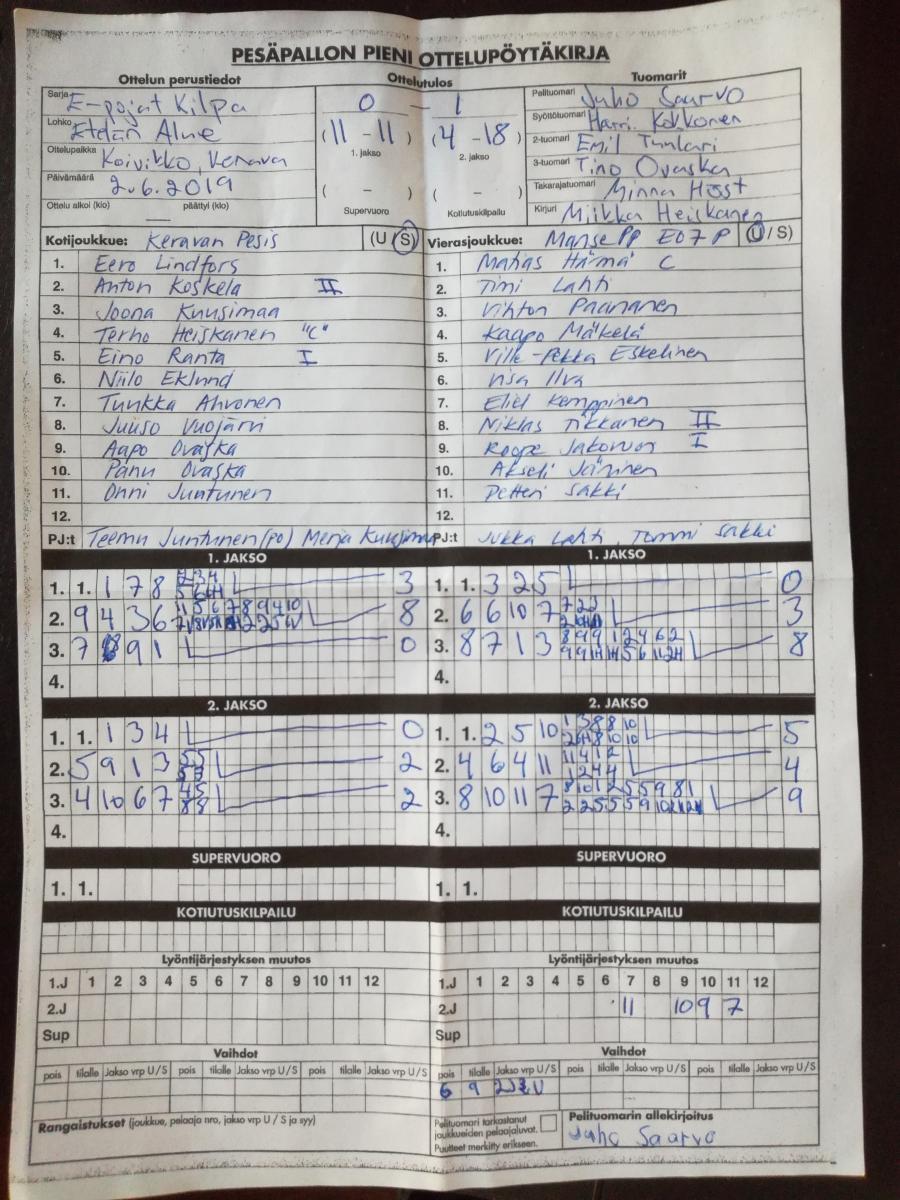 PESÄPALLON PIENI OTTELUPÖYTÄKIRJA
Ottelun perustiedot
Ottelutulos
Tuomarit
Sarja E-pojat Kilpa
Lohko Etelän Alue
Ottelupaikka Koivikko, Kerava
Päivämäärä 2.6.2019
Ottelu alkoi (klo) päättyi (klo)
0 - 1
(11 - 11)
1. jakso
(4 - 18)
2. jakso
( - )
Supervuoro
( - )
Kotiutuskilpailu
Pelituomari Juho Saarvo
Syöttötuomari Harri Kokkonen
2-tuomari Emil Tuulari
3-tuomari Tino Ovaska
Takarajatuomari Minna Höst
Kirjuri Miikka Heiskanen
Kotijoukkue: Keravan Pesis (U / S)
1. Eero Lindfors
2. Anton Koskela II
3. Joona Kuusimaa
4. Terho Heiskanen "C"
5. Eino Ranta I
6. Niilo Eklund
7. Tuukka Ahvonen
8. Juuso Vuojärvi
9. Aapo Ovaska
10. Panu Ovaska
11. Onni Juntunen
12.
PJ:t Teemu Juntunen (po) Merja Kuusimaa
Vierasjoukkue: Manse PP E07 P (U / S)
1. Matias Härmä C
2. Timi Lahti
3. Vihtori Paananen
4. Kaapo Mäkelä
5. Ville-Pekka Eskelinen
6. Visa Ilva
7. Eliel Kemppinen
8. Niklas Tikkanen II
9. Roope I
10. Akseli
11. Petteri Sakki
12.
PJ:t Jukka Lahti, Tommi Sakki
1. JAKSO
1. 1. 1 7 8 3
2. 9 4 3 6 8
3. 7 9 1 0
4.
1. JAKSO
1. 1. 3 2 5 0
2. 6 6 10 7 3
3. 8 7 1 3 8
4.
2. JAKSO
1. 1. 1 3 4 0
2. 5 9 1 3 2
3. 4 10 6 7 2
4.
2. JAKSO
1. 1. 2 5 10 5
2. 4 6 4 11 4
3. 8 10 11 7 9
4.
SUPERVUORO
1. 1.
SUPERVUORO
1. 1.
KOTIUTUSKILPAILU
KOTIUTUSKILPAILU
Lyöntijärjestyksen muutos
1.J 1 2 3 4 5 6 7 8 9 10 11 12
2.J
Sup
Lyöntijärjestyksen muutos
1.J 1 2 3 4 5 6 7 8 9 10 11 12
2.J 11 10 9 7
Sup
Vaihdot
pois tilalle Jakso vrp U / S pois tilalle Jakso vrp U / S pois tilalle Jakso vrp U / S
Vaihdot
pois tilalle Jakso vrp U / S pois tilalle Jakso vrp U / S pois tilalle Jakso vrp U / S
6 9
Rangaistukset (joukkue, pelaaja nro, jakso vrp U / S ja syy)
Pelituomari tarkastanut
joukkueiden pelaajaluvat.
Puutteet merkitty erikseen.
Pelituomarin allekirjoitus
Juho Saarvo